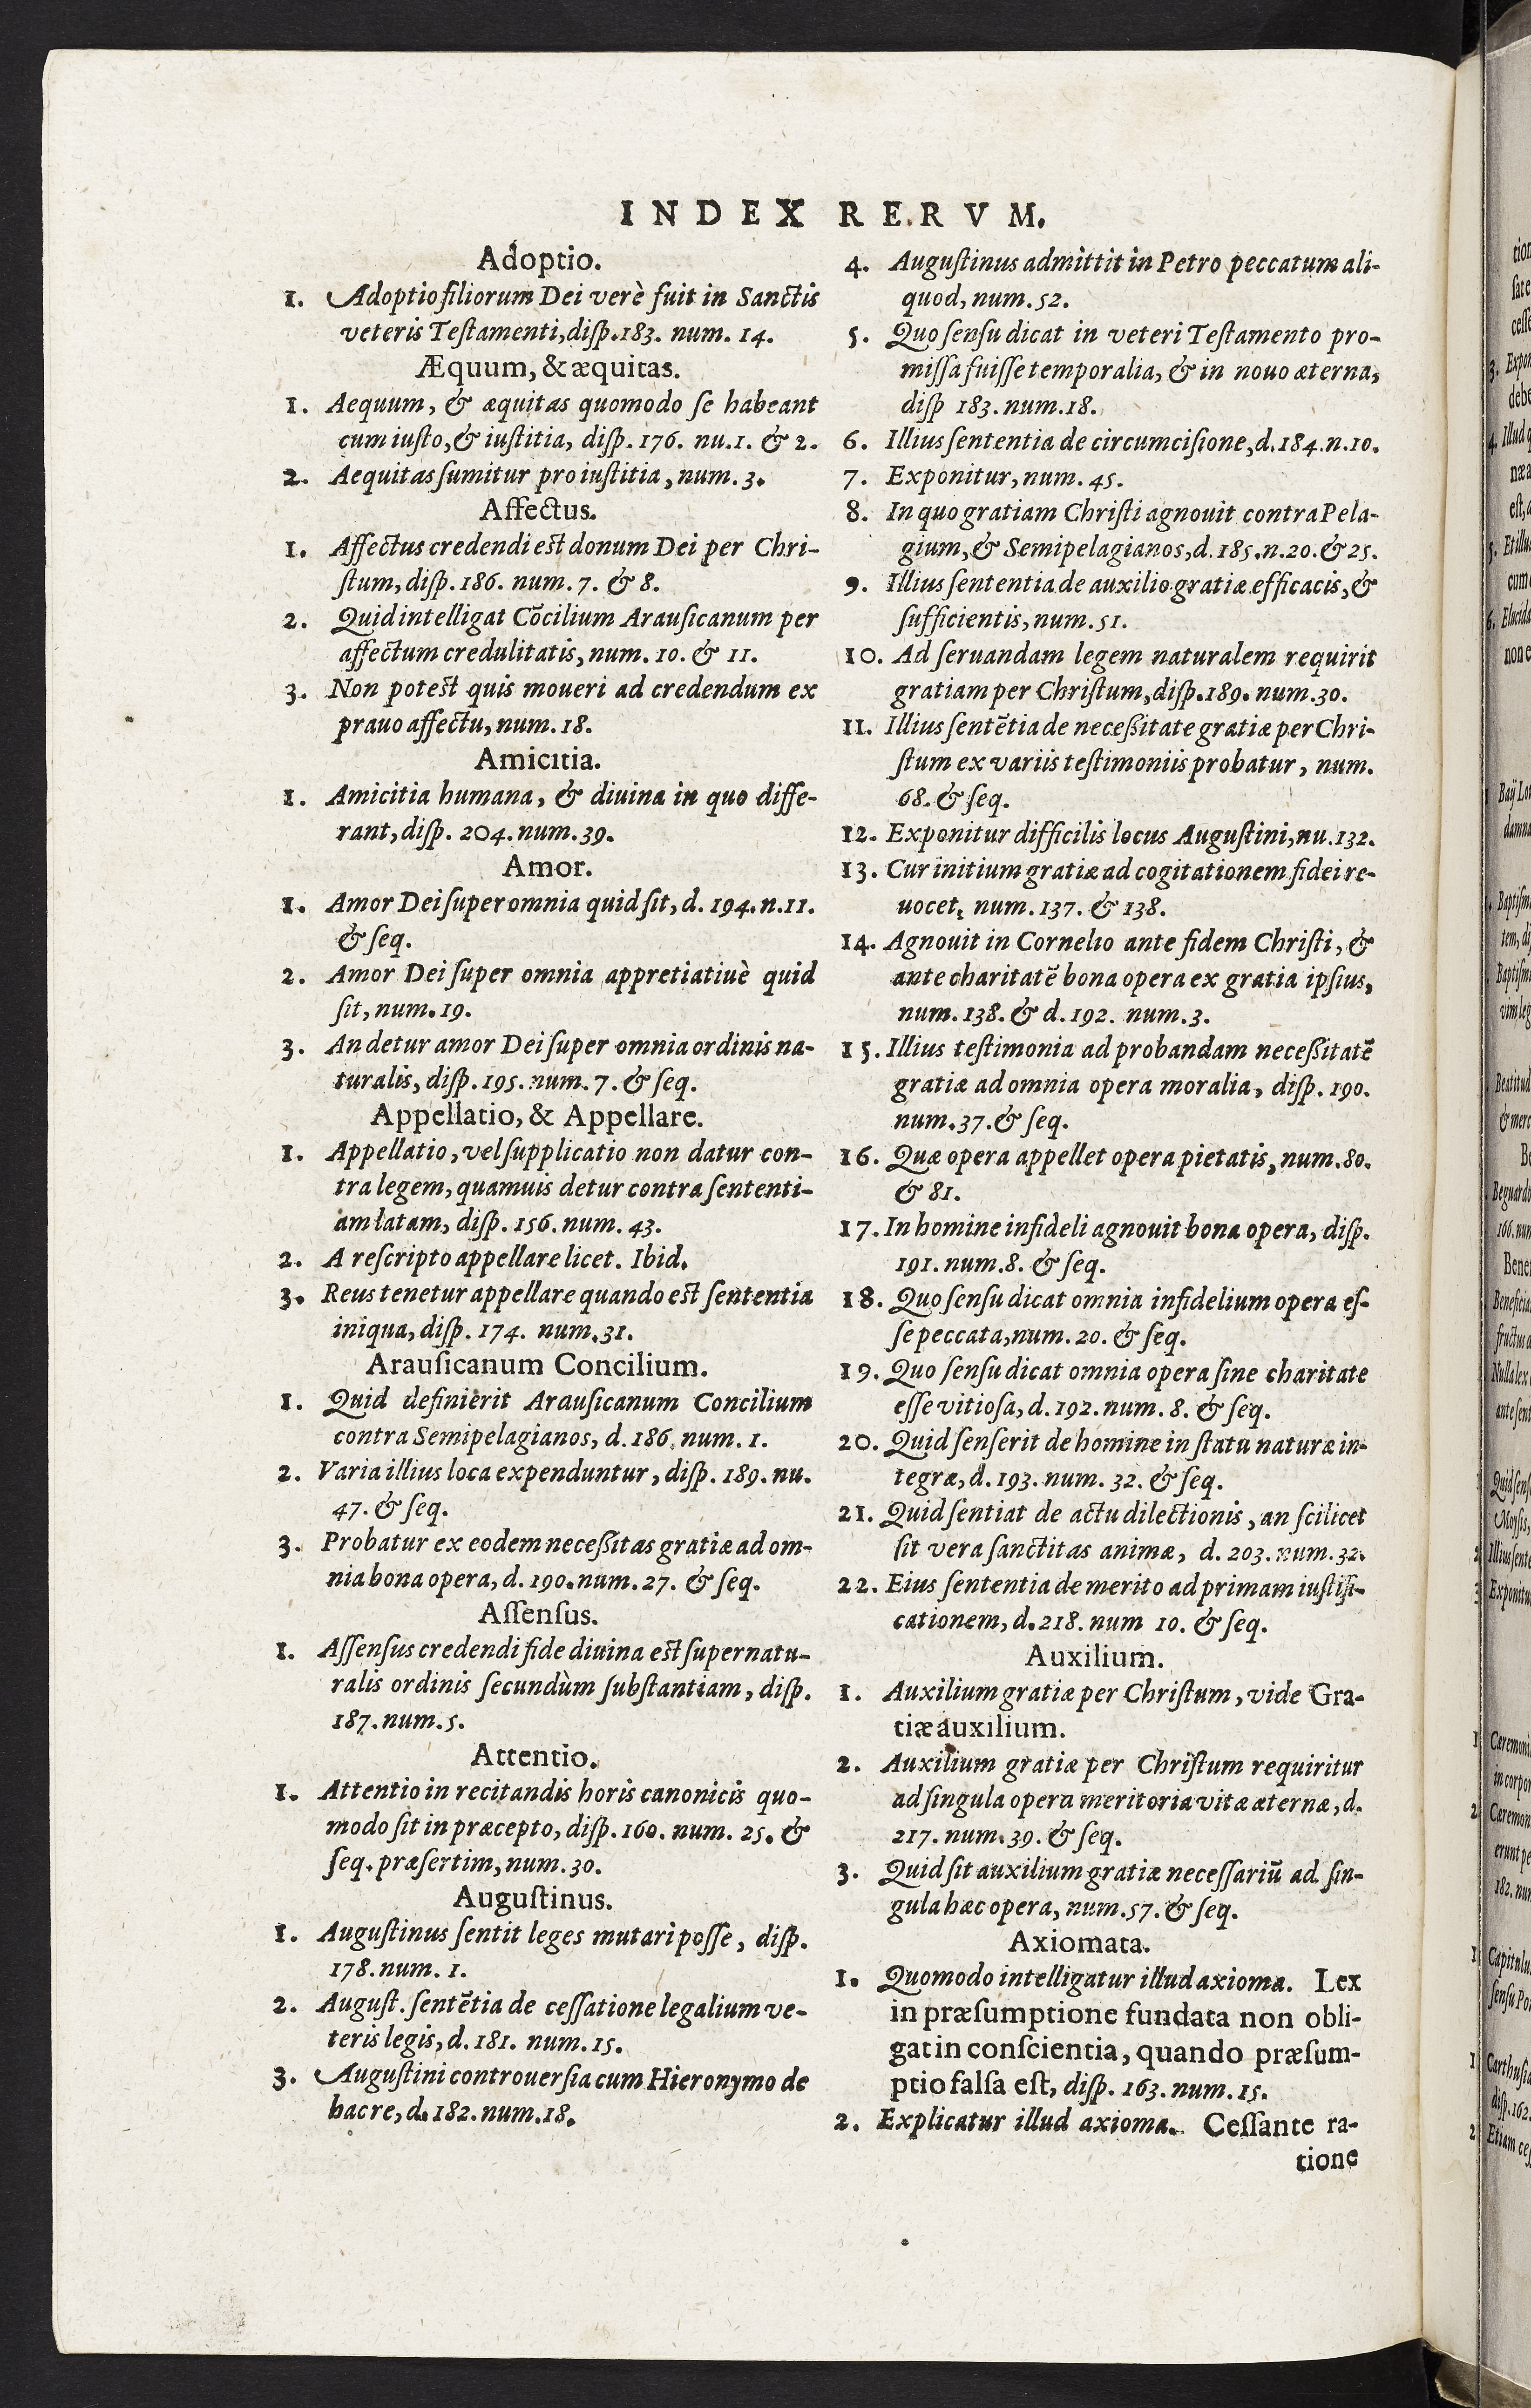 INDEX RERVM.
Adoptio.
1. Adoptio filiorum Dei verè fuit in Sanctis
veteris Teſtamenti, diſp. 183. num. 14.
Æquum, & æquitas.
1. Aequum, & æquitas quomodo ſe habeant
cum iuſto, & iuſtitia, diſp. 176. nu. 1. & 2.
2. Aequitas ſumitur pro iuſtitia, num. 3.
Affectus.
1. Affectus credendi eſt donum Dei per Chri-
ſtum, diſp. 186. num. 7. & 8.
2. Quid intelligat Cõcilium Arauſicanum per
affectum credulitatis, num. 10. & 11.
3. Non poteſt quis moueri ad credendum ex
prauo affectu, num. 18.
Amicitia.
1. Amicitia humana, & diuina in quo diffe-
rant, diſp. 204. num. 39.
Amor.
1. Amor Dei ſuper omnia quid ſit, d. 194. n. 11.
& ſeq.
2. Amor Dei ſuper omnia appretiatiuè quid
ſit, num. 19.
3. An detur amor Dei ſuper omnia ordinis na-
turalis, diſp. 195. num. 7. & ſeq.
Appellatio, & Appellare.
1. Appellatio, vel ſupplicatio non datur con-
tra legem, quamuis detur contra ſententi-
am latam, diſp. 156. num. 43.
2. A reſcripto appellare licet. Ibid.
3. Reus tenetur appellare quando eſt ſententia
iniqua, diſp. 174. num. 31.
Arauſicanum Concilium.
1. Quid definierit Arauſicanum Concilium
contra Semipelagianos, d. 186. num. 1.
2. Varia illius loca expenduntur, diſp. 189. nu.
47. & ſeq.
3. Probatur ex eodem neceßitas gratiæ ad om-
nia bona opera, d. 190. num. 27. & ſeq.
Aſſenſus.
1. Aſſenſus credendi fide diuina eſt ſupernatu-
ralis ordinis ſecundùm ſubſtantiam, diſp.
187. num. 5.
Attentio.
1. Attentio in recitandis horis canonicis quo-
modo ſit in præcepto, diſp. 160. num. 25. &
ſeq. præſertim, num. 30.
Auguſtinus.
1. Auguſtinus ſentit leges mutari poſſe, diſp.
178. num. 1.
2. Auguſt. ſentẽtia de ceſſatione legalium ve-
teris legis, d. 181. num. 15.
3. Auguſtini controuerſia cum Hieronymo de
hac re, d. 182. num. 18.
4. Auguſtinus admittit in Petro peccatum ali-
quod, num. 52.
5. Quo ſenſu dicat in veteri Teſtamento pro-
miſſa fuiſſe temporalia, & in nouo æterna,
diſp 183. num. 18.
6. Illius ſententia de circumciſione, d. 184. n. 10.
7. Exponitur, num. 45.
8. In quo gratiam Chriſti agnouit contra Pela-
gium, & Semipelagianos, d. 185. n. 20. & 25.
9. Illius ſententia de auxilio gratiæ efficacis, &
ſufficientis, num. 51.
10. Ad ſeruandam legem naturalem requirit
gratiam per Chriſtum, diſp. 189. num. 30.
11. Illius ſentẽtia de neceßitate gratiæ per Chri-
ſtum ex variis teſtimoniis probatur, num.
68. & ſeq.
12. Exponitur difficilis locus Auguſtini, nu. 132.
13. Cur initium gratiæ ad cogitationem fidei re-
uocet, num. 137. & 138.
14. Agnouit in Cornelio ante fidem Chriſti, &
ante charitatẽ bona opera ex gratia ipſius,
num. 138. & d. 192. num. 3.
15. Illius teſtimonia ad probandam neceßitatẽ
gratiæ ad omnia opera moralia, diſp. 190.
num. 37. & ſeq.
16. Quæ opera appellet opera pietatis, num. 80.
& 81.
17. In homine infideli agnouit bona opera, diſp.
191. num. 8. & ſeq.
18. Quo ſenſu dicat omnia infidelium opera eſ-
ſe peccata, num. 20. & ſeq.
19. Quo ſenſu dicat omnia opera ſine charitate
eſſe vitioſa, d. 192. num. 8. & ſeq.
20. Quid ſenſerit de homine in ſtatu naturæ in-
tegræ, d. 193. num. 32. & ſeq.
21. Quid ſentiat de actu dilectionis, an ſcilicet
ſit vera ſanctitas animæ, d. 203. num. 32.
22. Eius ſententia de merito ad primam iuſtifi-
cationem, d. 218. num 10. & ſeq.
Auxilium.
1. Auxilium gratiæ per Chriſtum, vide Gra-
tiæ auxilium.
2. Auxilium gratiæ per Chriſtum requiritur
ad ſingula opera meritoria vitæ æternæ, d.
217. num. 39. & ſeq.
3. Quid ſit auxilium gratiæ neceſſariũ ad ſin-
gula hæc opera, num. 57. & ſeq.
Axiomata.
1. Quomodo intelligatur illud axioma. Lex
in præſumptione fundata non obli-
gat in conſcientia, quando præſum-
ptio falſa eſt, diſp. 163. num. 15.
2. Explicatur illud axioma. Ceſſante ra-
tione